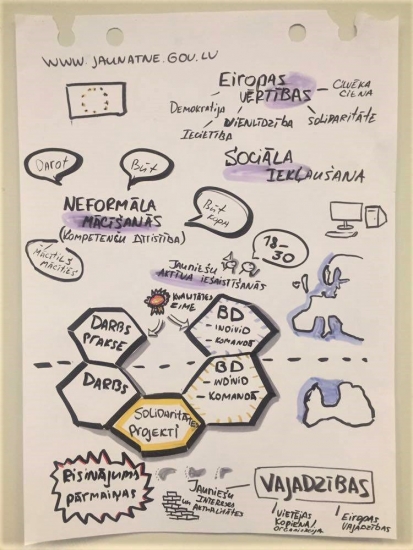 WWW.JAUNATNE.GOV.LV
EIROPAS
VĒRTĪBAS
CILVĒKA
CIEŅA
DEMOKRĀTIJA
VIENLĪDZĪBA
SOLIDARITĀTE
IECIETĪBA
DAROT
BŪT
SOCIĀLA
IEKĻAUŠANA
NEFORMĀLA
MĀCĪŠANĀS
(KOMPETENČU ATTĪSTĪBA)
BŪT
KOPĀ
18-
30
MĀCĪTIES
JAUNIEŠU
AKTĪVA IESAISTĪŠANĀS
KVALITĀTES
ZĪME
DARBS
PRAKSE
BD
- INDIVID
- KOMANDĀ
DARBS
BD
- INDIVID
- KOMANDĀ
SOLIDARITĀTES
PROJEKTI
RISINĀJUMS
PĀRMAIŅAS
JAUNIEŠU
INTERESES
UN
AKTUALITĀTES
VAJADZĪBAS
- VIETĒJAS
KOPIENA/
ORGANIZĀCIJA
- EIROPAS
VAJADZĪBAS